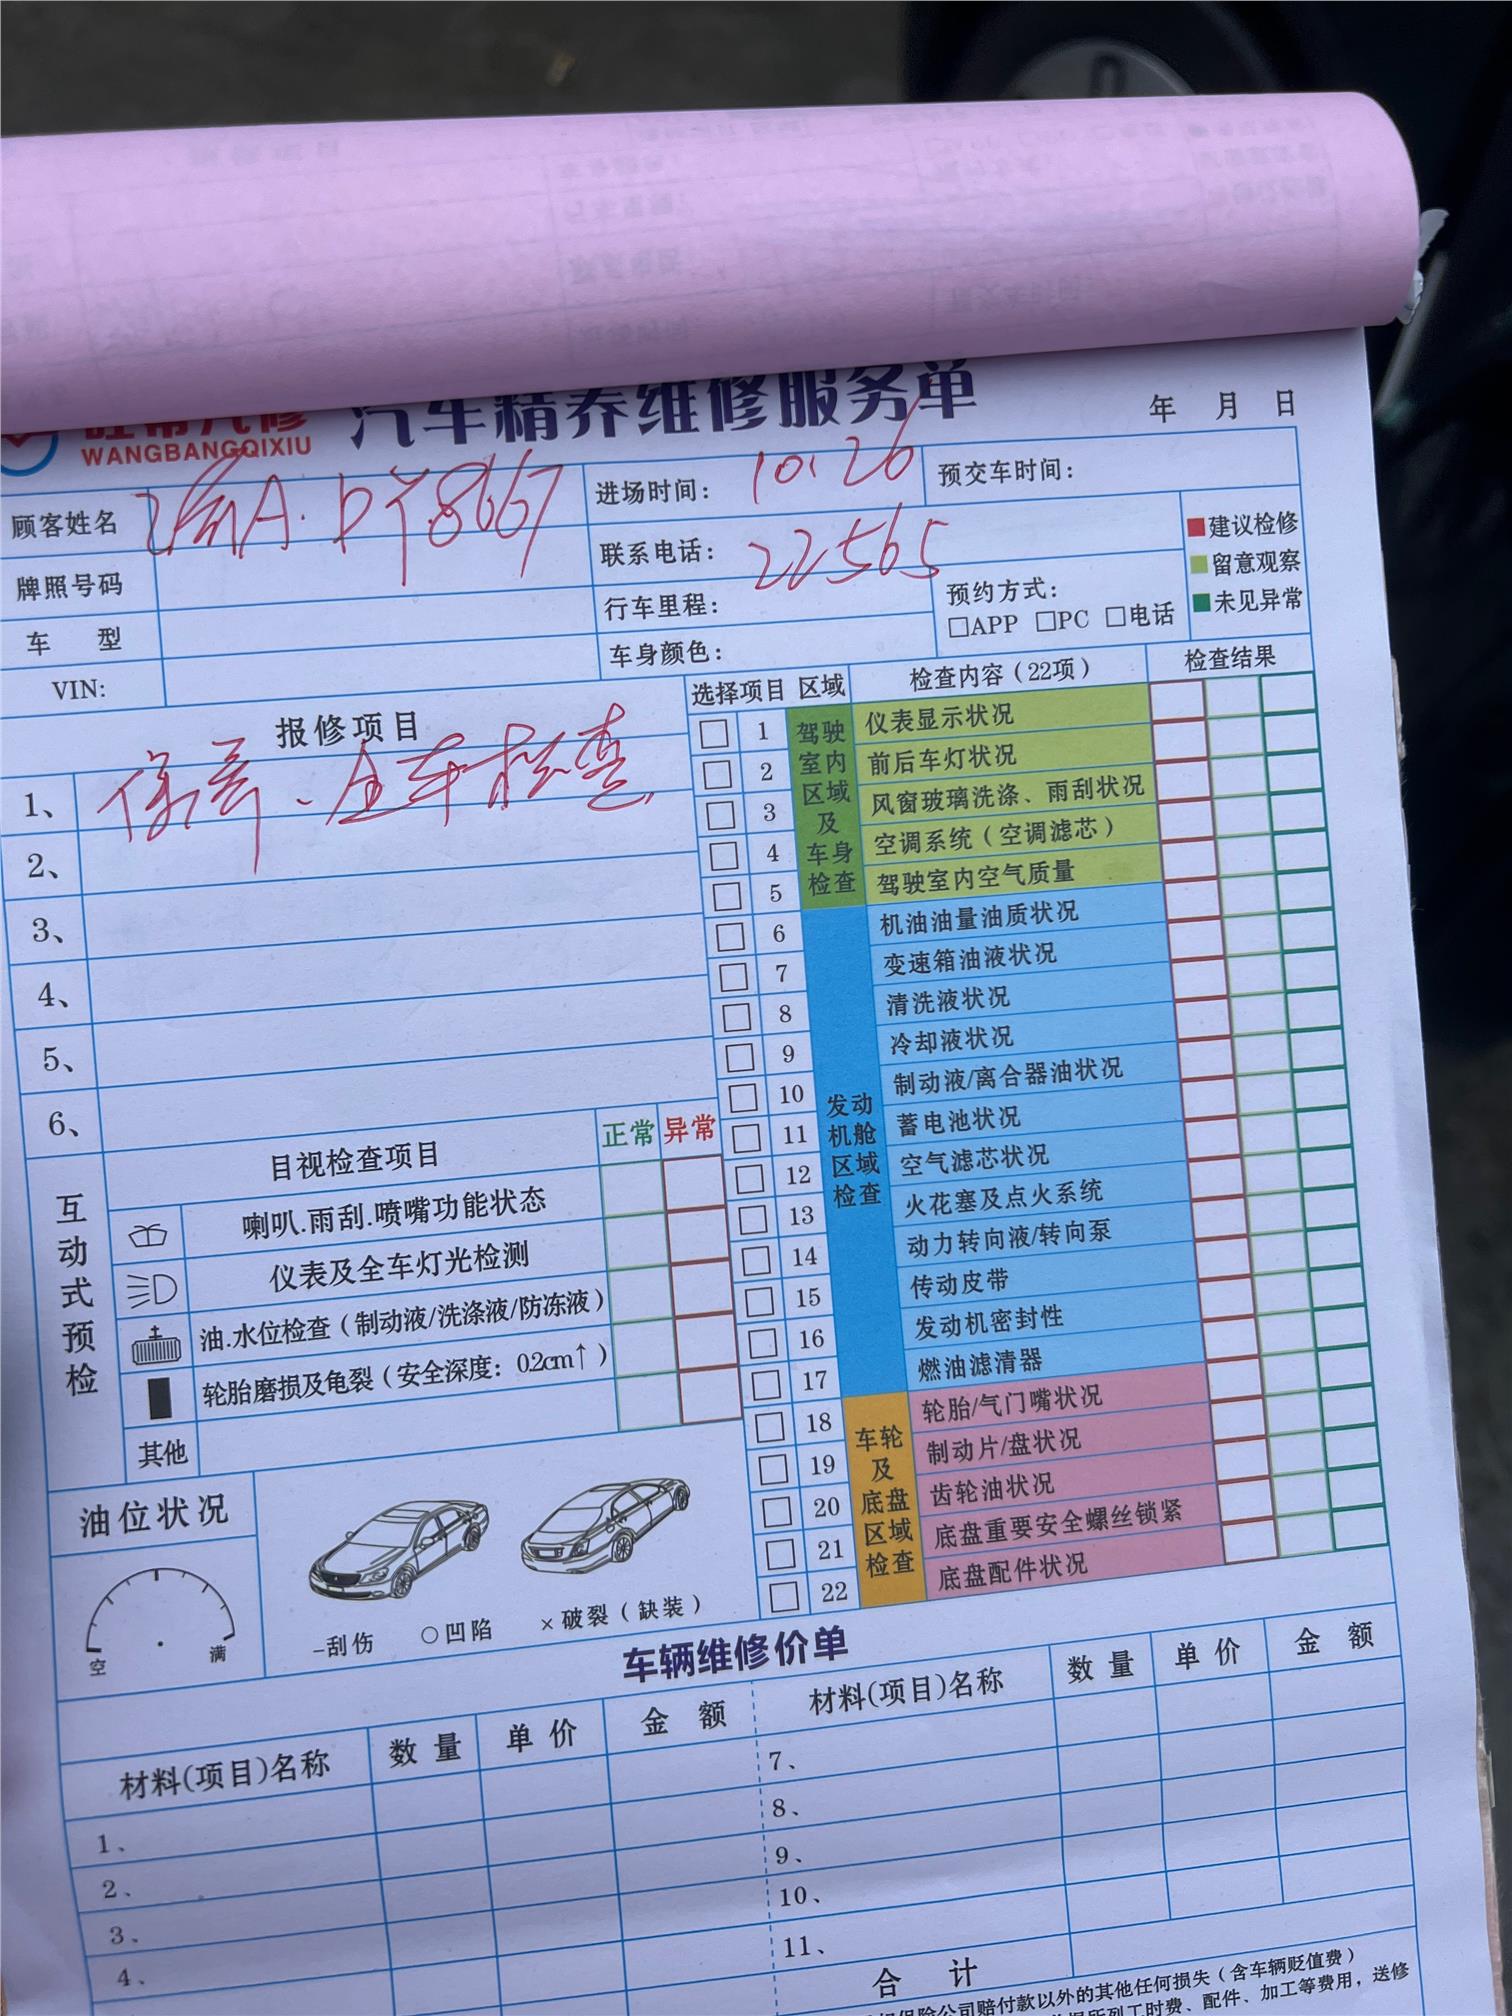 旺帮汽修
WANGBANGQIXIU
汽车精养维修服务单
年 月 日
顾客姓名
A·DY8667
进场时间: 10.26
预交车时间:
牌照号码
联系电话: 22565
建议检修
留意观察
未见异常
车 型
行车里程:
预约方式:
□APP □PC □电话
VIN:
车身颜色:
报修项目
1、保养、全车检查
2、
3、
4、
5、
6、
选择项目 区域 检查内容(22项) 检查结果
驾驶室内区域及车身检查
1 仪表显示状况
2 前后车灯状况
3 风窗玻璃洗涤、雨刮状况
4 空调系统(空调滤芯)
5 驾驶室内空气质量
发动机舱区域检查
6 机油油量油质状况
7 变速箱油液状况
8 清洗液状况
9 冷却液状况
10 制动液/离合器油状况
11 蓄电池状况
12 空气滤芯状况
13 火花塞及点火系统
14 动力转向液/转向泵
15 传动皮带
16 发动机密封性
17 燃油滤清器
车轮及底盘区域检查
18 轮胎/气门嘴状况
19 制动片/盘状况
20 齿轮油状况
21 底盘重要安全螺丝锁紧
22 底盘配件状况
互动式预检
目视检查项目 正常 异常
喇叭.雨刮.喷嘴功能状态
仪表及全车灯光检测
油.水位检查(制动液/洗涤液/防冻液)
轮胎磨损及龟裂(安全深度: 0.2cm↑)
其他
油位状况
空 满
-刮伤 ○凹陷 ×破裂(缺装)
车辆维修价单
材料(项目)名称 数量 单价 金额
1、
2、
3、
4、
材料(项目)名称 数量 单价 金额
7、
8、
9、
10、
11、
合 计
保险公司赔付款以外的其他任何损失(含车辆贬值费)
所列工时费、配件、加工等费用,送修